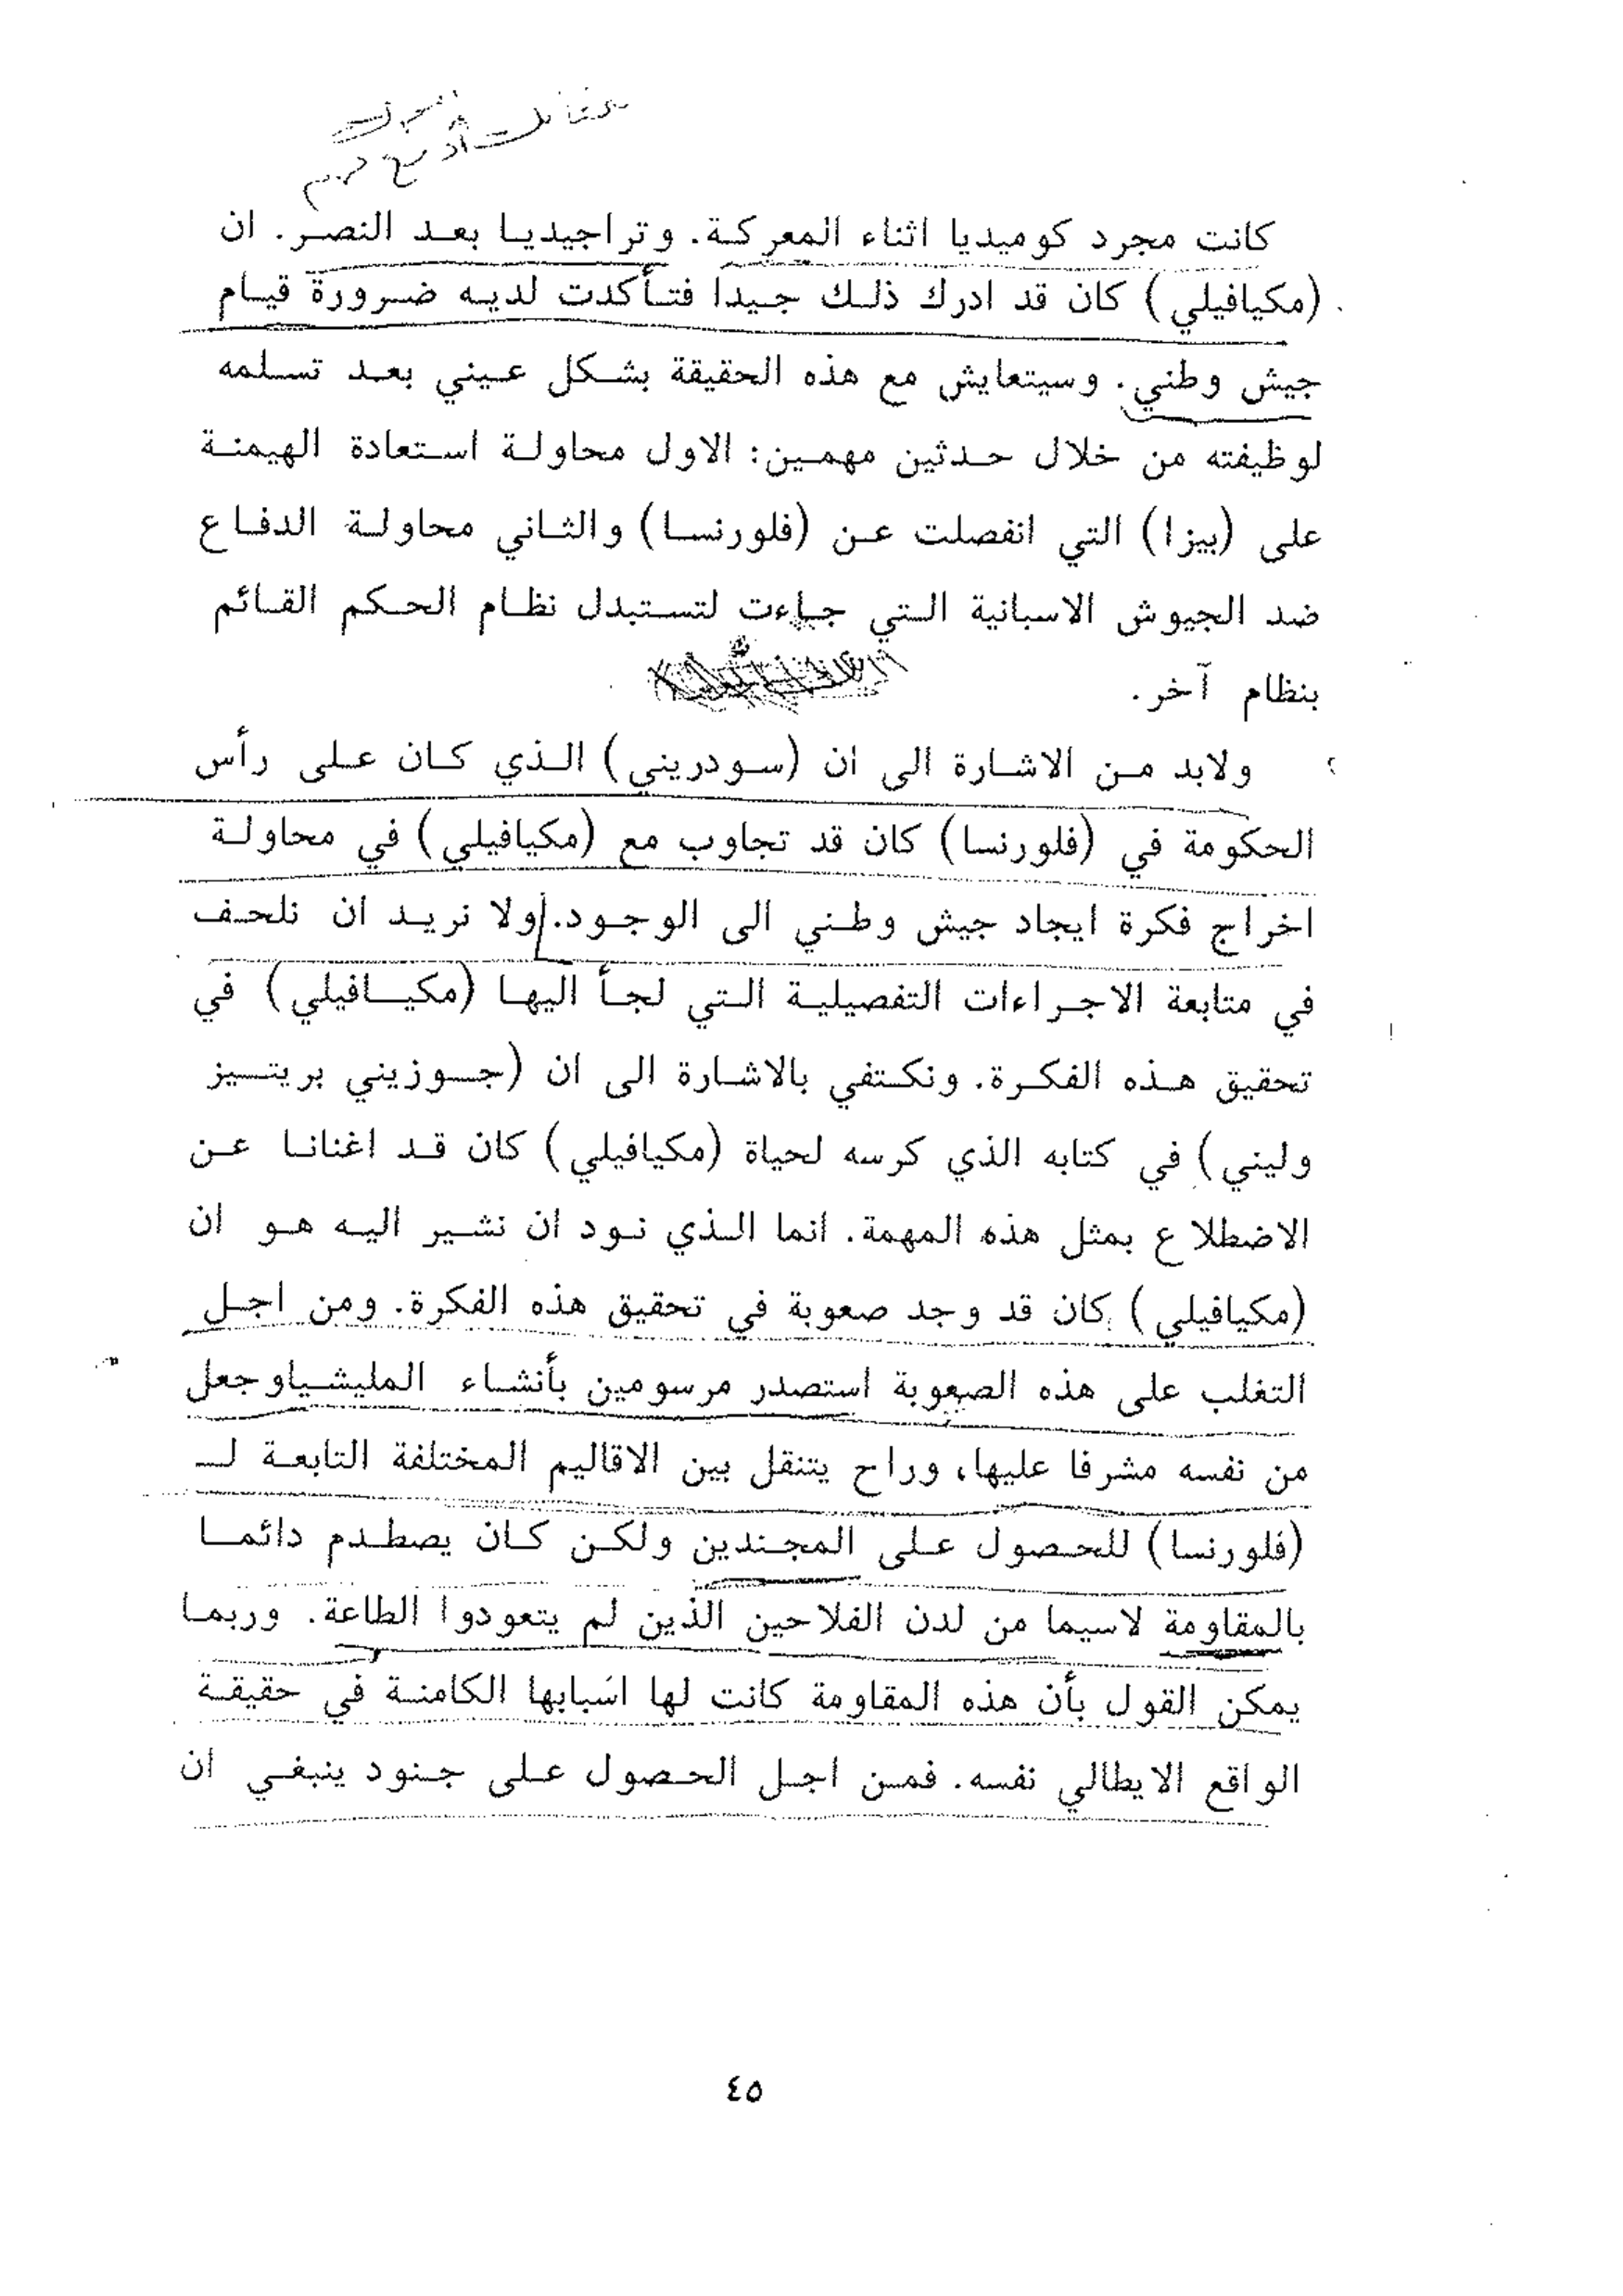 كانت مجرد كوميديا اثناء المعركة. وتراجيديا بعد النصر. ان
(مكيافيلي) كان قد ادرك ذلك جيدا فتأكدت لديه ضرورة قيام
جيش وطني. وسيتعايش مع هذه الحقيقة بشكل عيني بعد تسلمه
لوظيفته من خلال حدثين مهمين: الاول محاولة استعادة الهيمنة
على (بيزا) التي انفصلت عن (فلورنسا) والثاني محاولة الدفاع
ضد الجيوش الاسبانية التي جاءت لتستبدل نظام الحكم القائم
بنظام آخر.
ولابد من الاشارة الى ان (سودريني) الذي كان على رأس
الحكومة في (فلورنسا) كان قد تجاوب مع (مكيافيلي) في محاولة
اخراج فكرة ايجاد جيش وطني الى الوجود. ولا نريد ان نلحف
في متابعة الاجراءات التفصيلية التي لجأ اليها (مكيافيلي) في
تحقيق هذه الفكرة. ونكتفي بالاشارة الى ان (جوزيني بريتسيز
وليني) في كتابه الذي كرسه لحياة (مكيافيلي) كان قد اغنانا عن
الاضطلاع بمثل هذه المهمة. انما الذي نود ان نشير اليه هو ان
(مكيافيلي) كان قد وجد صعوبة في تحقيق هذه الفكرة. ومن اجل
التغلب على هذه الصعوبة استصدر مرسومين بأنشاء المليشياوجعل
من نفسه مشرفا عليها، وراح يتنقل بين الاقاليم المختلفة التابعة لـ
(فلورنسا) للحصول على المجندين ولكن كان يصطدم دائما
بالمقاومة لاسيما من لدن الفلاحين الذين لم يتعودوا الطاعة. وربما
يمكن القول بأن هذه المقاومة كانت لها اسبابها الكامنة في حقيقة
الواقع الايطالي نفسه. فمن اجل الحصول على جنود ينبغي ان
٤٥